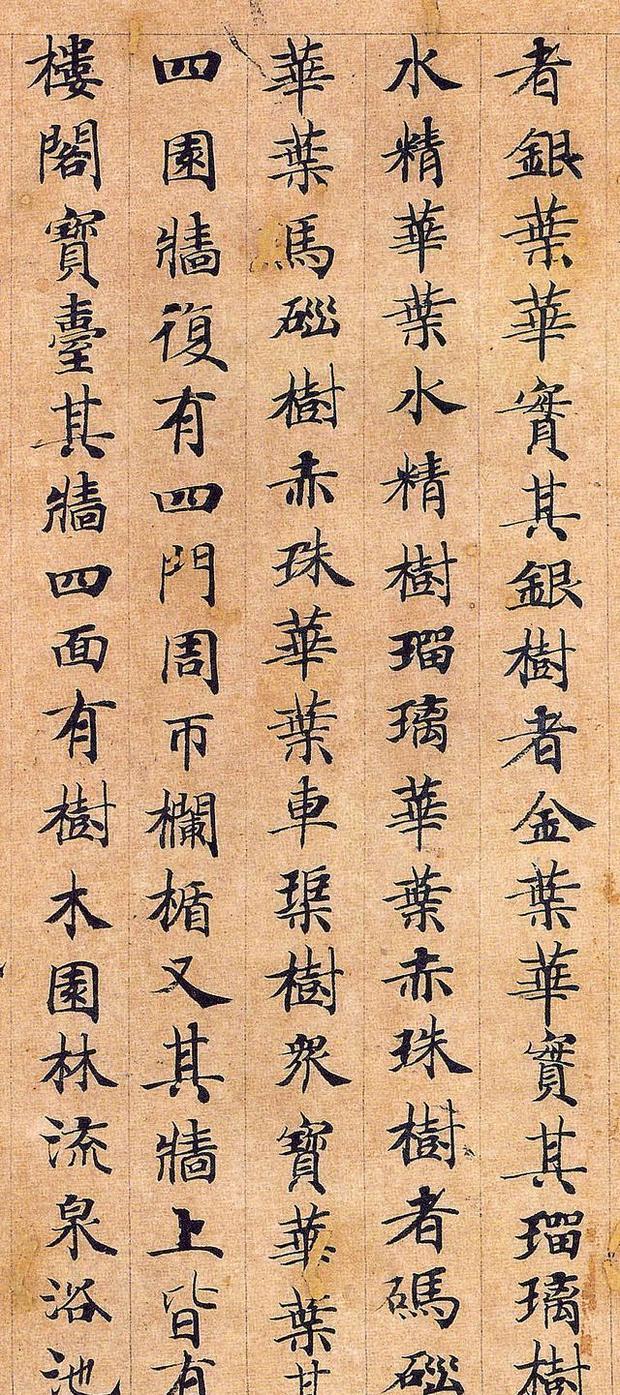 者銀葉華實其銀樹者金葉華寶其瑠璃樹
水精華葉水精樹瑠璃華葉赤珠樹者碼碯
華葉馬碯樹赤珠華葉車璖樹衆寶華葉其
四園牆復有四門周帀欄楯又其牆上皆有
樓閣寶臺其牆四面有樹木園林流泉浴池